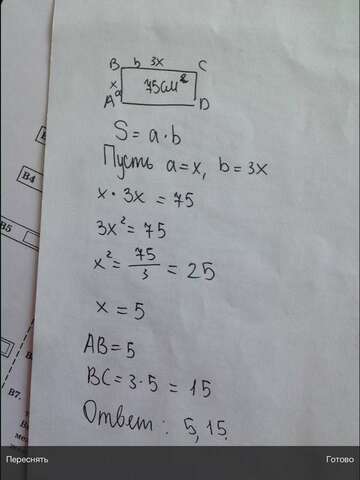 B b 3x C
x 75см²
a
A D
S = a·b
Пусть a = x, b = 3x
x · 3x = 75
3x² = 75
x² = 75/3 = 25
x = 5
AB = 5
BC = 3·5 = 15
Ответ: 5, 15.
В4
В5
В7.
Переснять Готово